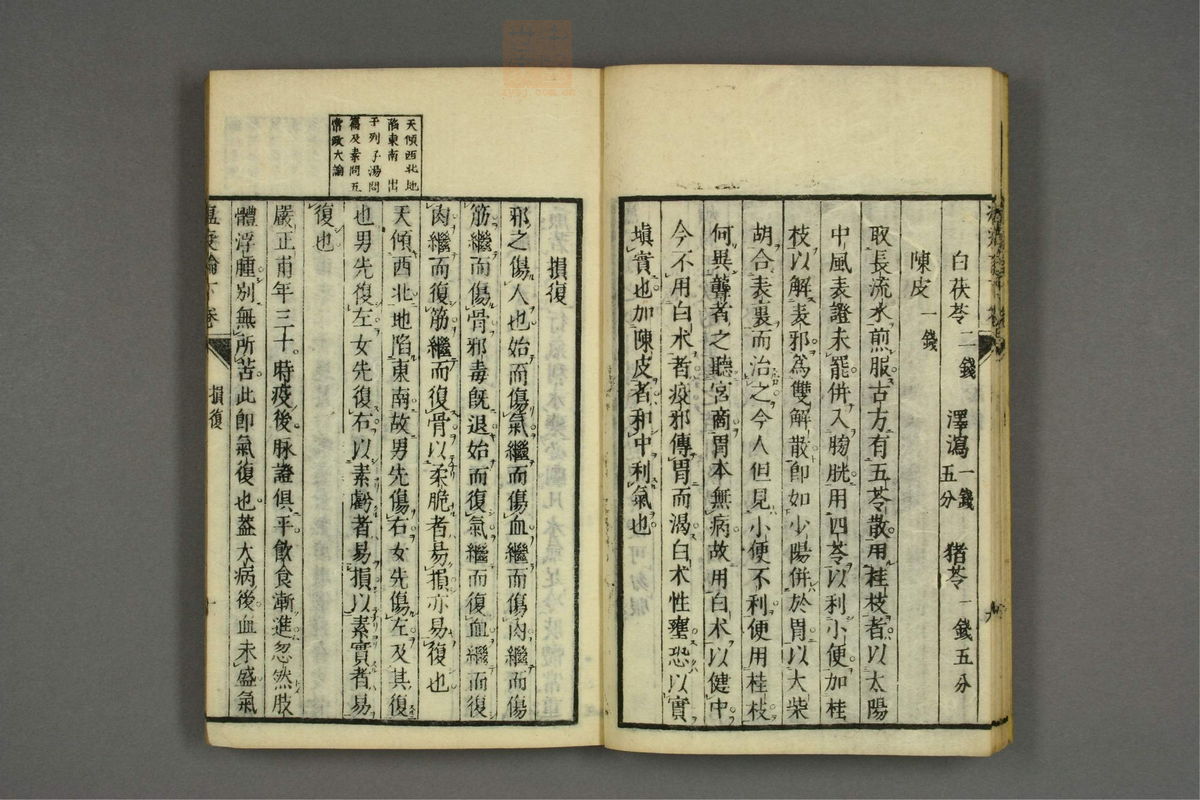 白茯苓二錢 澤瀉一錢五分 猪苓一錢五分
陳皮一錢
取長流水煎服古方有五苓散用桂枝者以太陽
中風表證未罷併入膀胱用四苓以利小便加桂
枝以解表邪爲雙解散即如少陽併於胃以大柴
胡合表裏而治之今人但見小便不利便用桂枝
何異聾者之聽宮商胃本無病故用白术以健中
今不用白术者疫邪傳胃而渴白术性壅恐以實
塡實也加陳皮者和中利氣也
天傾西北地
陷東南出
于列子湯問
篇及素問五
常政大論
損復
邪之傷人也始而傷氣繼而傷血繼而傷肉繼而傷
筋繼而傷骨邪毒旣退始而復氣繼而復血繼而復
肉繼而復筋繼而復骨以柔脆者易損亦易復也
天傾西北地陷東南故男先傷右女先傷左及其復
也男先復左女先復右以素虧者易損以素實者易
復也
嚴正甫年三十時疫後脉證俱平飮食漸進忽然肢
體浮腫別無所苦此即氣復也葢大病後血未盛氣
溫疫論下卷 損復